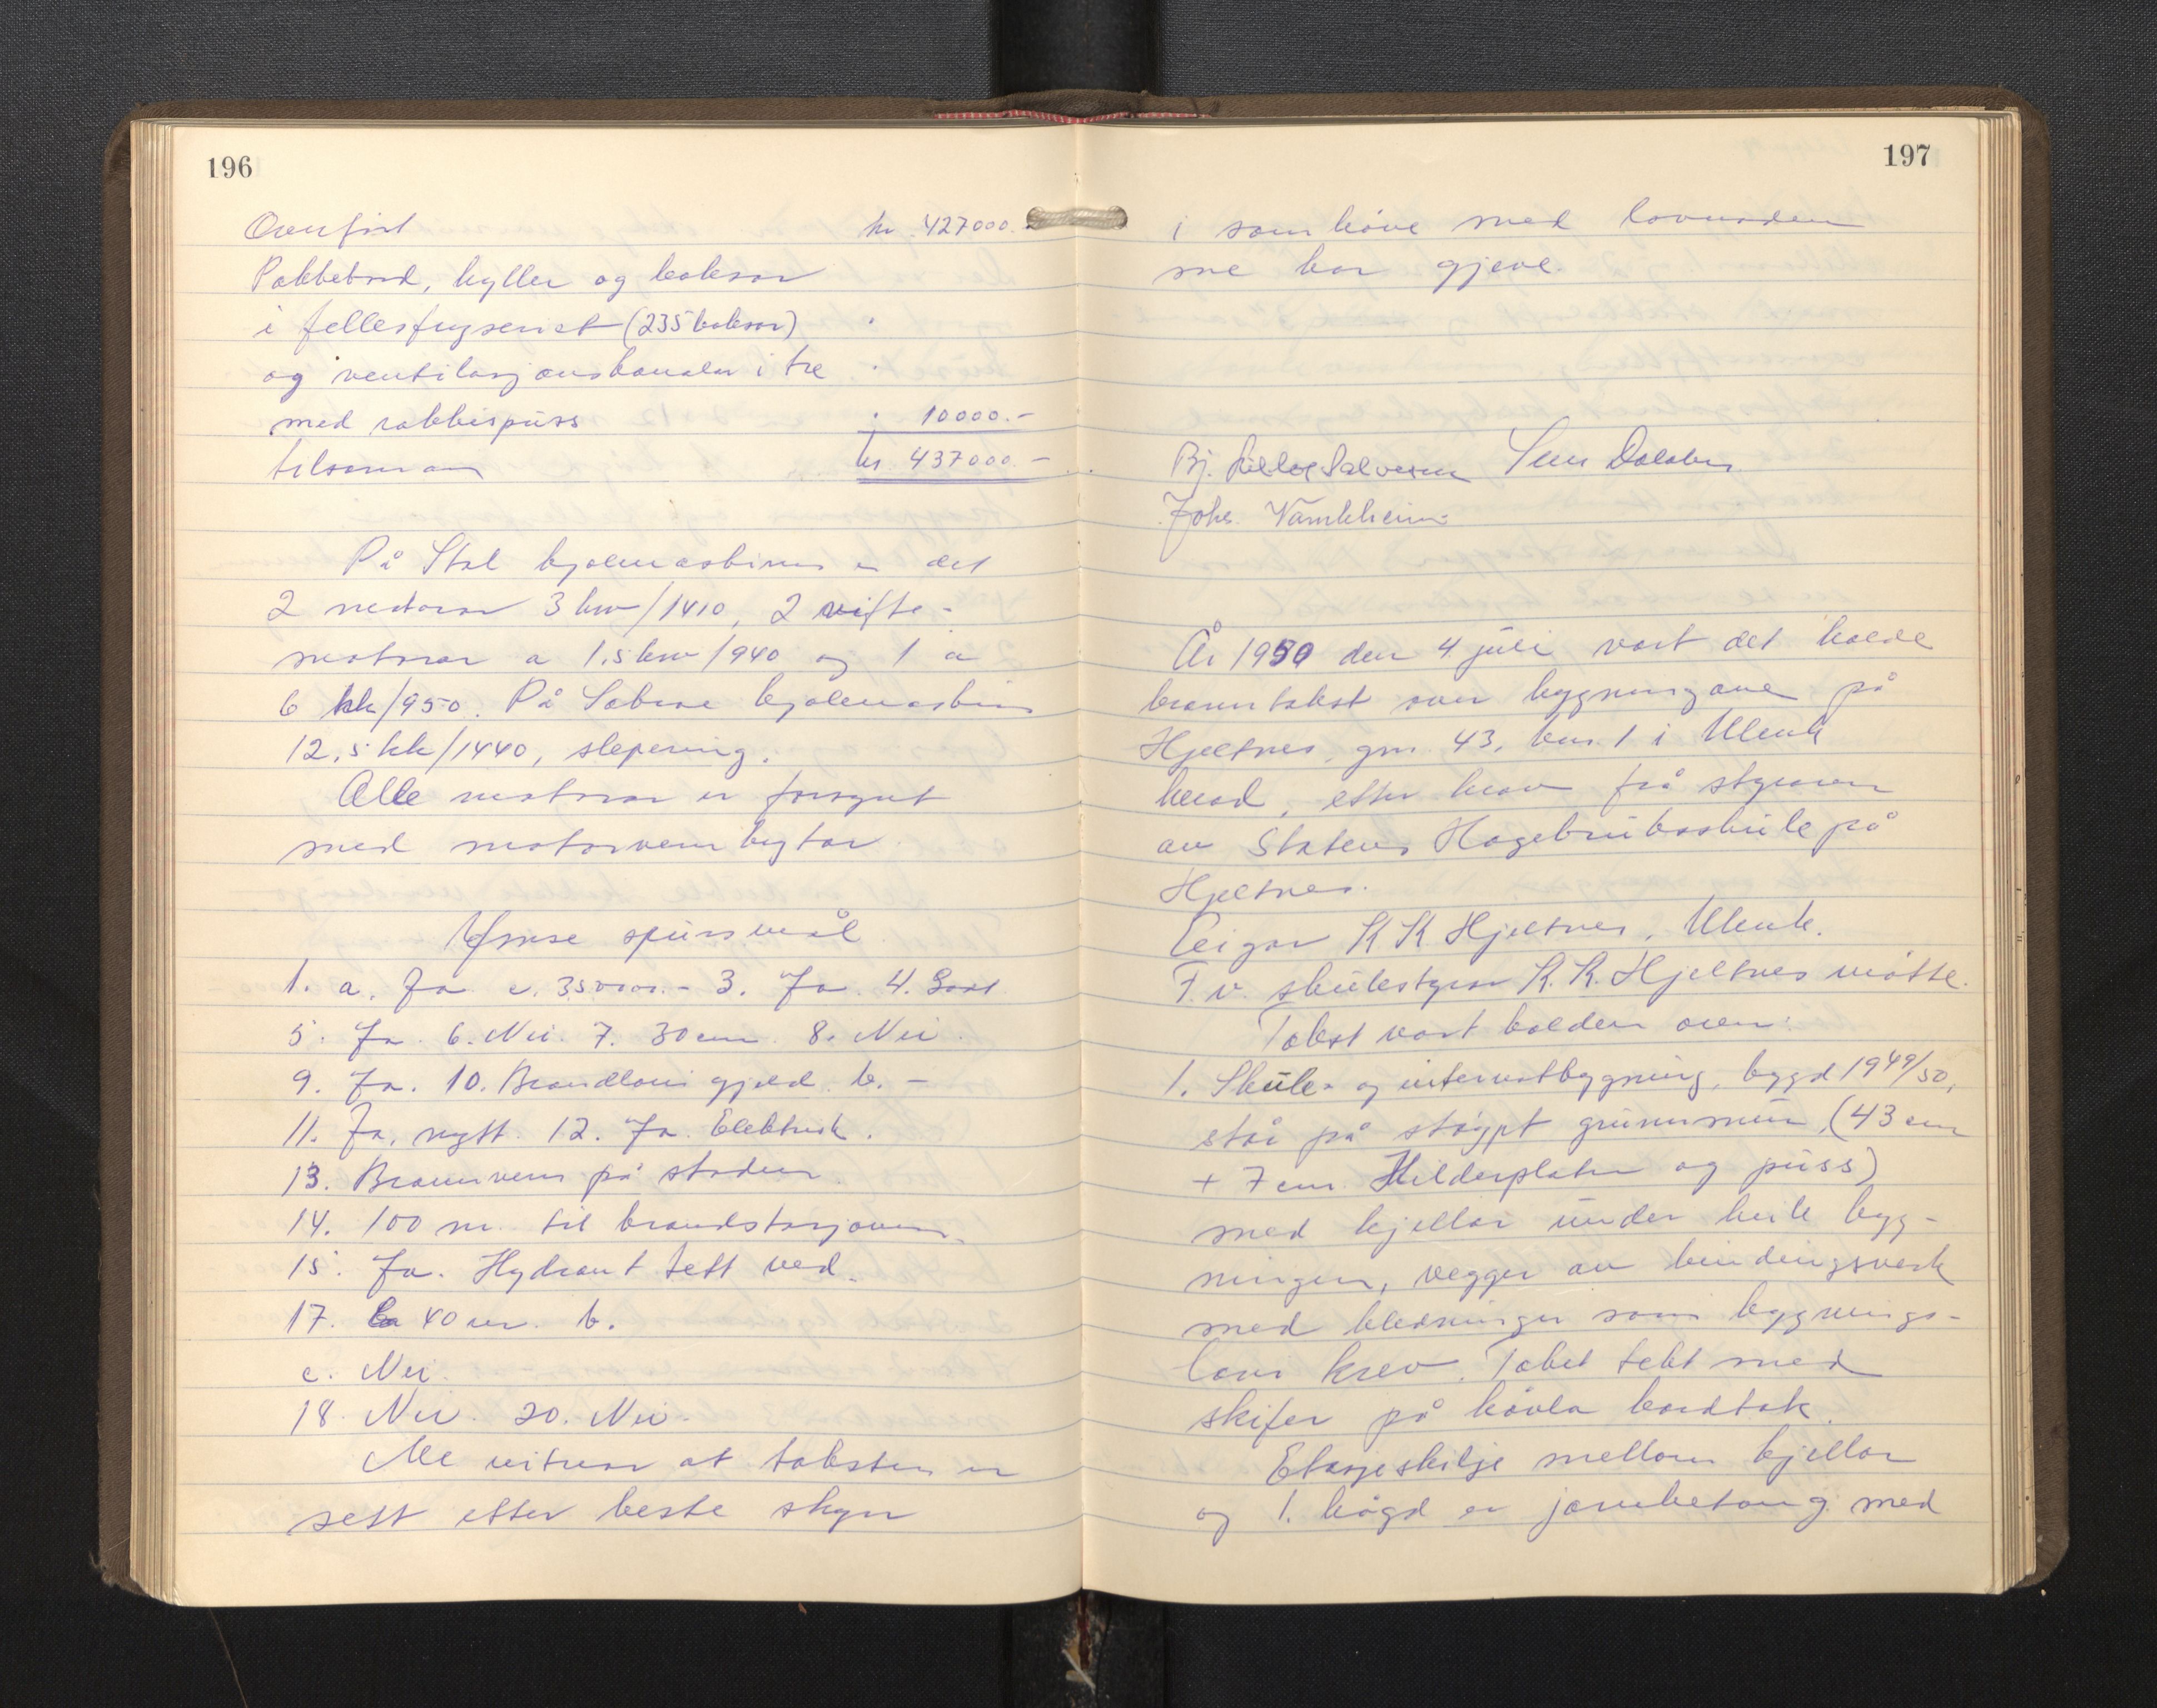 196
Overført kr 427000.-
Pakkebord, hyller og boksar
i fellesfryseriet (235 boksar)
og ventilasjonskanalar i tre
med rabbispuss 10000.-
tilsaman kr 437000.-
På Stal kjølemaskiner er det
2 motorar 3 kw/1410, 2 vifte-
motorar a 1.5 kw/940 og 1 a
6 hk/950. På Sabroe kjølemaskin
12,5 hk/1440, slepering.
Alle motorar er forsynt
med motorvernbrytar
Ymse spursmål
1. a. Ja c. 35000.- 3. Ja. 4.
5. Ja. 6. Nei. 7. 30 cm. 8. Nei.
9. Ja. 10. Brandlovi gjeld. b. -
11. Ja, nytt. 12. Ja. Elektrisk.
13. Brannvern på staden.
14. 100 m. til brandstasjonen.
15. Ja. Hydrant tett ved.
17. Ca 40 m. b.
c. Nei.
18. Nei. 20. Nei.
Me vitnar at taksten er
sett etter beste skyn
197
i samhøve med lovnaden
me har gjeve.
Bj. Lillegraven Sem
Johs. Vambheim
År 1950 den 4 juli vart det halde
branntakst over bygningane på
Hjeltnes, gnr. 43, bnr. 1 i Ulvik
herad, etter krav frå styraren
av Statens Hagebruksskule på
Hjeltnes.
Eigar K K Hjeltnes, Ulvik.
T.v. skulestyrar K. K. Hjeltnes møtte.
Takst vart halden over:
1. Skule- og internatbygning, bygd 1949/50,
står på støypt grunnmur, (43 cm
+ 7 cm. plater og puss)
med kjellar under heile byg-
ningen, vegger av bindingsverk
med kledninger som bygnings-
lovi krev. Taket tekt med
skifer på høvla bordtak.
Etasjeskilje mellom kjellar
og 1. høgd er jarnbetong med